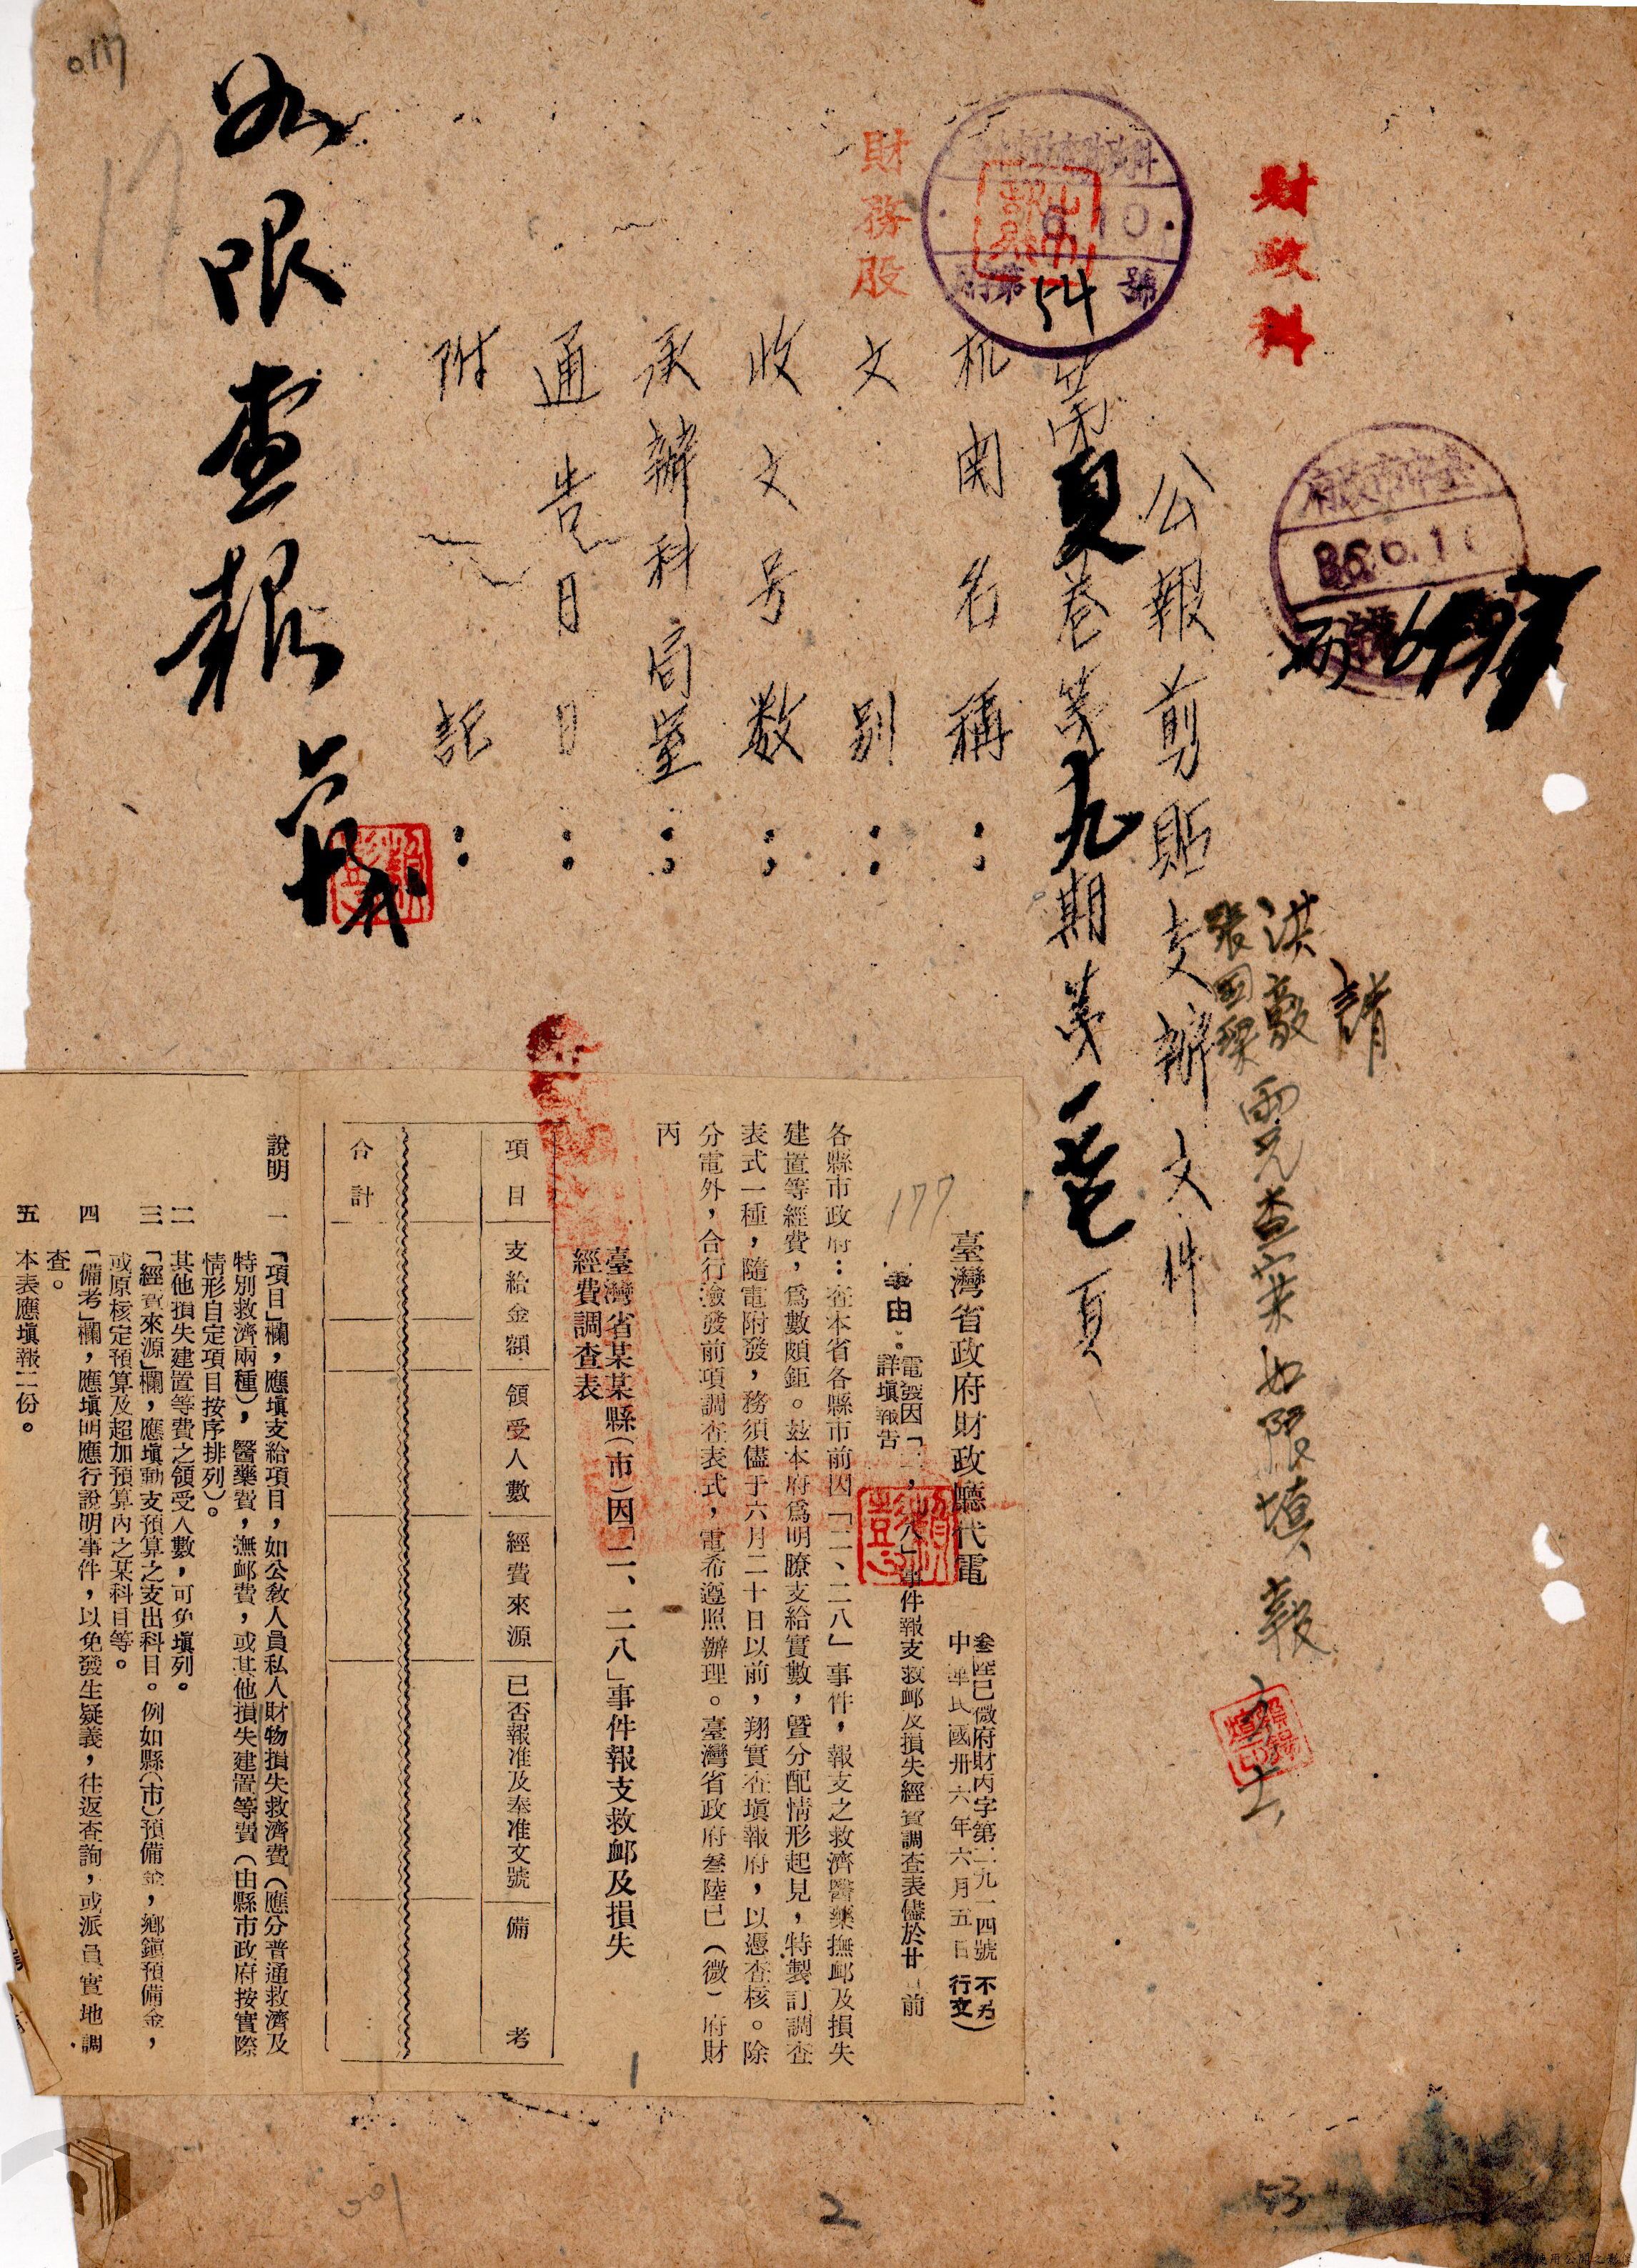 財政科
臺中市政府
36.6.11
請
洪敲
張國樑
兩兄查案如限填報
公報剪貼交辦文件
第夏卷第九期第壱頁
機関名稱：
文別：
收文号数：
承辦科局室：
通告月日：
附記：
財務股
6.10
財第54號
如限查報
177
臺灣省政府財政廳代電
叁陸巳微府財丙字第二九一四號
中華民國卅六年六月五日
（不另行文）
事由：電發因「二，二八」事件報支救卹及損失經費調查表儘於廿日前
詳填報告
各縣市政府：查本省各縣市前因「二、二八」事件，報支之救濟醫藥撫卹及損失
建置等經費，爲數頗鉅。茲本府爲明瞭支給實數，暨分配情形起見，特製訂調查
表式一種，隨電附發，務須儘于六月二十日以前，翔實查塡報府，以憑查核。除
分電外，合行檢發前項調查表式，電希遵照辦理。臺灣省政府叁陸巳（微）府財
丙
臺灣省某某縣（市）因「二、二八」事件報支救卹及損失
經費調查表
項目
支給金額
領受人數
經費來源
已否報准及奉准文號
備考
合計
說明
一 「項目」欄，應塡支給項目，如公教人員私人財物損失救濟費（應分普通救濟及
特別救濟兩種），醫藥費，撫卹費，或其他損失建置等費（由縣市政府按實際
情形自定項目按序排列）。
二 其他損失建置等費之領受人數，可免塡列。
三 「經費來源」欄，應塡動支預算之支出科目。例如縣（市）預備金，鄉鎮預備金，
或原核定預算及超加預算內之某科目等。
四 「備考」欄，應塡明應行說明事件，以免發生疑義，往返查詢，或派員實地調
查。
五 本表應塡報二份。
1
2
53